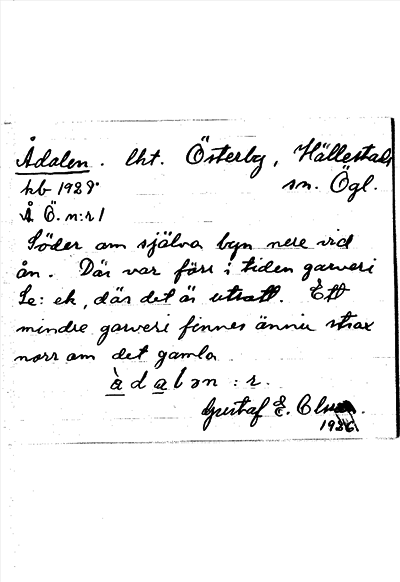 Ådalen. lht. Österby, Hällestads
sn. Ögl.
hb 1928.
Å Ö. n:r 1
Söder om själva byn nere vid
ån. Där var förr i tiden garveri
Se: ek, där det är utsatt. Ett
mindre garveri finnes ännu strax
norr om det gamla
àdalən : r.
Gustaf E. Olsson.
1926